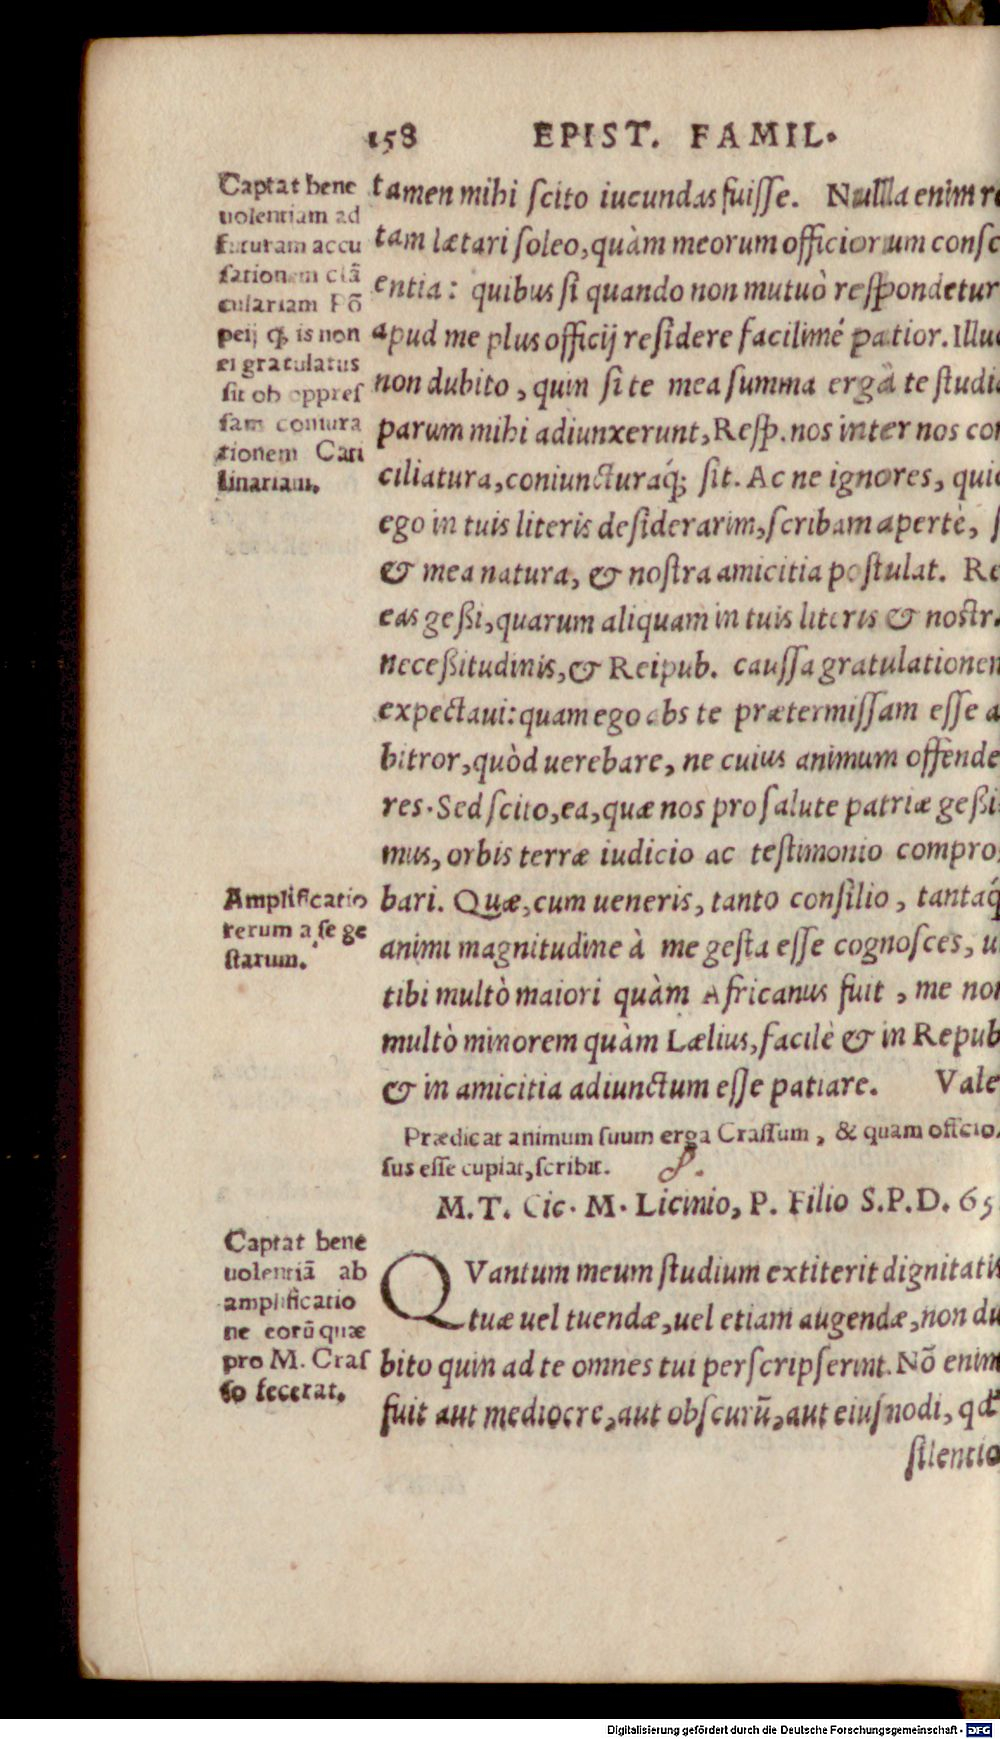 158 EPIST. FAMIL.
Captat bene
uolentiam ad
futuram accu
sationem clã
culariam Põ
peij q; is non
ei gratulatus
sit ob oppres
sam coniura
tionem Cati
linariam.
tamen mihi scito iucundas fuisse. Nulla enim re
tam lætari soleo, quàm meorum officiorum consc
entia: quibus si quando non mutuò respondetur
apud me plus officij residere facilimé patior. Illud
non dubito, quin si te mea summa erga te studia
parum mihi adiunxerunt, Resp. nos inter nos con
ciliatura, coniuncturaq́; sit. Ac ne ignores, quid
ego in tuis literis desiderarim, scribam apertè, s
& mea natura, & nostra amicitia postulat. Re
eas geßi, quarum aliquam in tuis literis & nostr
neceßitudinis, & Reipub. caussa gratulationem
expectaui: quam ego abs te prætermissam esse a
bitror, quòd uerebare, ne cuius animum offende
res. Sed scito, ea, quæ nos pro salute patriæ geßi
mus, orbis terræ iudicio ac testimonio compro
bari. Quæ, cum ueneris, tanto consilio, tantaq́
animi magnitudine à me gesta esse cognosces, u
tibi multò maiori quàm Africanus fuit, me non
multò minorem quàm Lælius, facilè & in Repub
& in amicitia adiunctum esse patiare. Vale
Amplificatio
rerum a se ge
starum.
Prædicat animum suum erga Crassum, & quam officio
sus esse cupiat, scribit.
M.T. Cic. M. Licinio, P. Filio S.P.D. 65
Captat bene
uolentiã ab
amplificatio
ne eorũ quæ
pro M. Cras
so fecerat.
QVantum meum studium extiterit dignitatis
tuæ uel tuendæ, uel etiam augendæ, non du
bito quin ad te omnes tui perscripserint. Nõ enim
fuit aut mediocre, aut obscurũ, aut eiusmodi, qđ
silentio
Digitalisierung gefördert durch die Deutsche Forschungsgemeinschaft - DFG